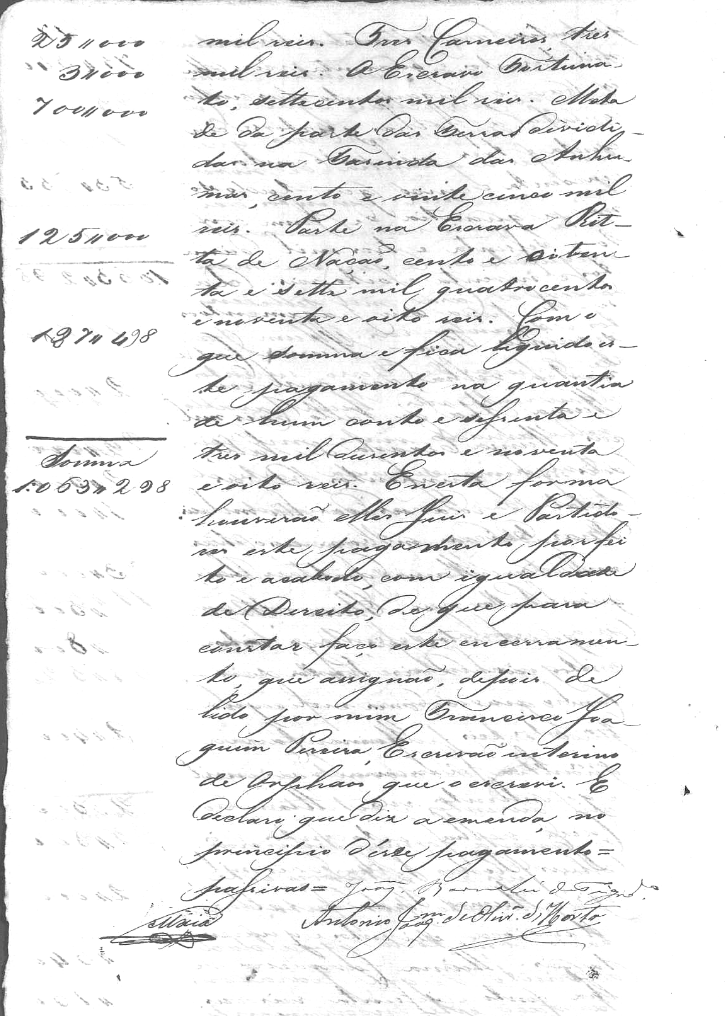 25"000 mil reis. Tres Carneiros, tres
3"000 mil reis. O Escravo Fortuna-
700"000 to, settecentos mil reis. Meta
de da parte das Terras dividi-
das na Fasenda das Anhu-
mas, cento e vinte cinco mil
125"000 reis. Parte na Escrava Rit-
ta de Nação, cento e oiten-
ta e sette mil quatrocentos
187"498 e noventa e oito reis. Com o
que somma e fica liquido es-
te pagamento na quantia
de hum conto e sessenta e
Somma tres mil dusentos e noventa
1:063"298 e oito reis. E nesta forma
houverão elles Juis e Partido-
res este pagamento por fei
to e acabado, com igualdade
de Direito, de que para
constar faço este encerramen-
to, que assignão, depois de
lido por mim Francisco Joa-
quim Pereira, Escrivão interino
de Orphaos, que o escrevi. E
declaro que diz a emenda no
principio d'este pagamento=
passivas= Joaq.
Maia Antonio Joaq.m de Oliv.ra d'Horta